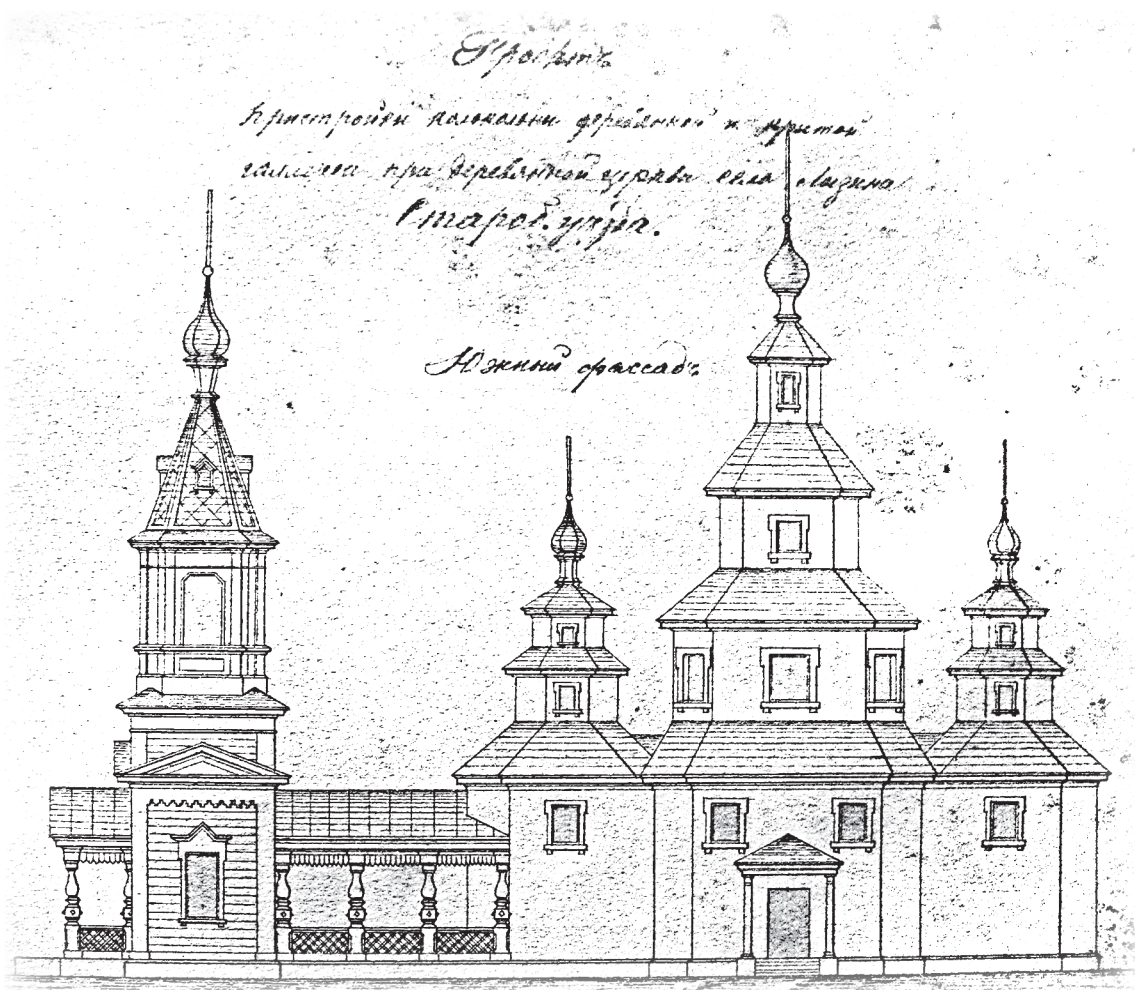 Проектъ
пристройки колокольни деревянной и крытой
галлереи при деревянной церкви села Лизина
Староб. уѣзда.
Южный фассадъ